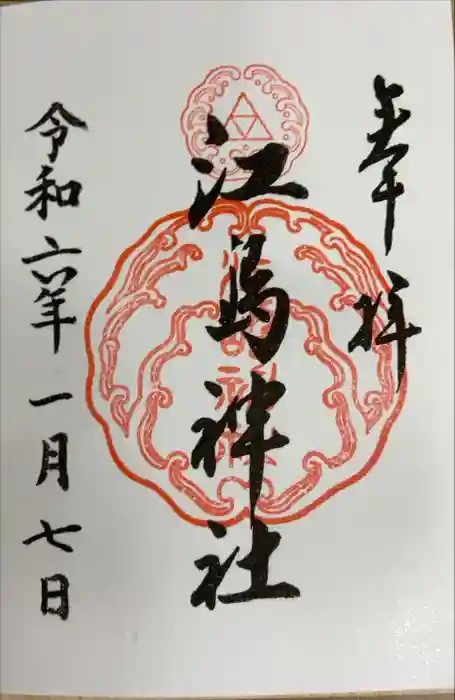 奉拝
江島神社
令和六年一月七日